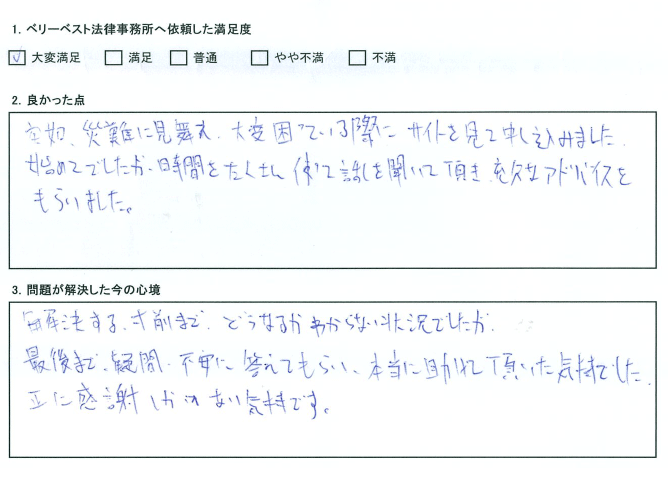 1. ベリーベスト法律事務所へ依頼した満足度
大変満足 満足 普通 やや不満 不満
2. 良かった点
突如、災難に見舞え、大変困っている際に サイトを見て申し込みました.
始めてでしたが、時間をたくさん 使って話しを聞いて頂き、アドバイスを
もらいました。
3. 問題が解決した今の心境
解決する、寸前まで、どうなるかわからない状況でしたが、
最後まで、疑問、不安に 答えてもらい、本当に助けて頂いた気持でした.
正に感謝しかない気持です。